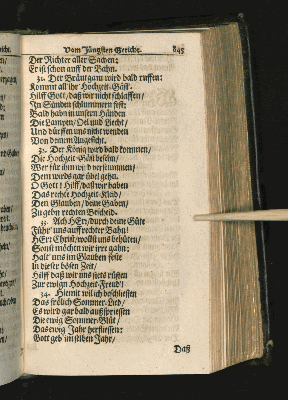 Vom Jüngsten Gericht. 845
Der Richter aller Sachen;
Er ist schon auff der Bahn.
31. Der Bräutgam wird bald ruffen:
Kommt all' ihr Hochzeit-Gäst'.
Hilff Gott/ daß wir nicht schlaffen/
In Sünden schlummern fest;
Bald haben in unsern Händen
Die Lampen/ Oel und Liecht/
Und dürffen uns nicht wenden
Von deinem Angesicht.
32. Der König wird bald kommen/
Die Hochzeit-Gäst besehn/
Wer für ihm wird
Dem wirds gar übel gehn.
O Gott! Hilff/ daß wir haben
Das rechte Hochzeit-Kleid/
Den Glauben/ deine Gaben/
Zu gebn rechten Bescheid.
33. Ach HErr/ durch deine Güte
Führ' uns auff rechter Bahn!
HErr Christ/ wollst uns behüten/
Sonst möchten wir irre gahn;
Halt' uns im Glauben feste
In dieser bösen Zeit/
Hilff daß wir uns stets rüsten
Zur ewign Hochzeit-Freud'!
34. Hiemit wil ich beschliessen
Das frölich Sommer-Lied/
Es wird gar bald außspriessen
Die ewig Sommer-Blüt/
Das ewig Jahr herfliessen:
Gott geb' im selben Jahr/
Daß